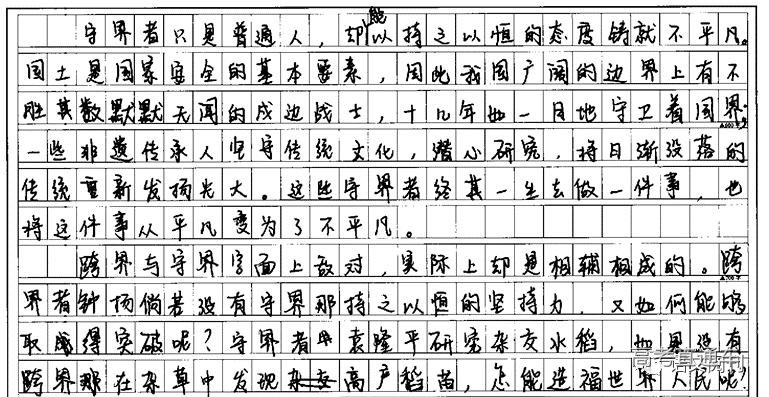 守界者只是普通人，却能以持之以恒的态度铸就不平凡。
国土是国家安全的基本要素，因此我国广阔的边界上有不
胜其数默默无闻的戍边战士，十几年如一日地守卫着国界；
一些非遗传承人坚守传统文化，潜心研究，将日渐没落的
传统重新发扬光大。这些守界者终其一生去做一件事，也
将这件事从平凡变为了不平凡。
跨界与守界字面上敌对，实际上却是相辅相成的。跨
界者钟扬倘若没有守界那持之以恒的坚持力，又如何能够
取得突破呢？守界者袁隆平研究杂交水稻，如果没有
跨界那在杂草中发现高产稻苗，怎能造福世界人民呢？
高考直通车